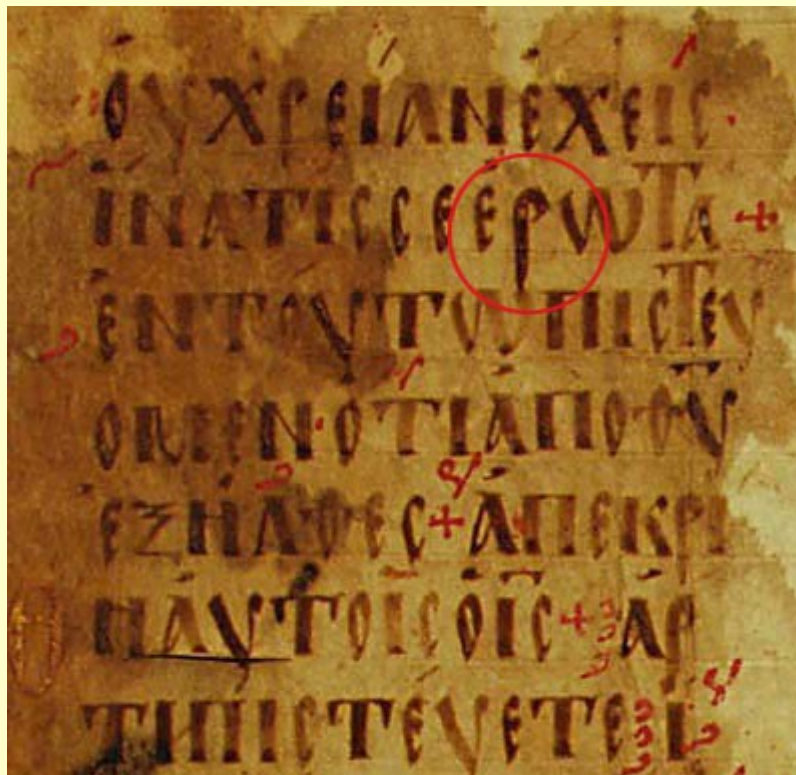 ΟΥΧΡΕΙΑΝΕΧΕΙϹ
ΙΝΑΤΙϹϹΕΕΡΩΤΑ +
ΕΝΤΟΥΤΩΠΙϹΤΕΥ
ΟΜΕΝ·ΟΤΙΑΠΟΘΥ
ΕΞΗΛΘΕϹ+ΑΠΕΚΡΙ
ΗΑΥΤΟΙϹΟΙϹ+ΑΡ
ΤΙΠΙϹΤΕΥΕΤΕ